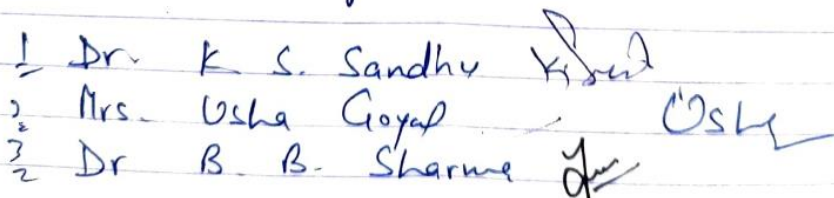 1 Dr. K S. Sandhu
2 Mrs. Usha Goyal Usha
3 Dr B. B. Sharma